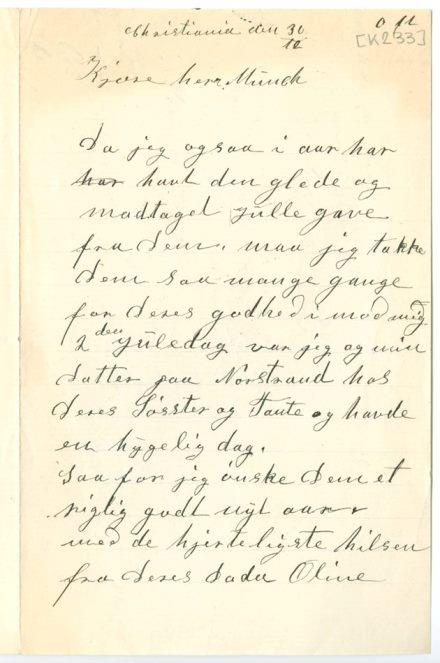 Christiania den 30/12
[K233]
Kjære herr Munch
Da jeg ogsaa i aar har
har havt den glede og
modtaget julle gave
fra Dem, maa jeg takke
Dem saa mange gange
for Deres godhed i mod mig
2 den Juledag var jeg og min
datter paa Norstrand hos
Deres Søsster og Tante og havde
en hygelig dag.
Saa for jeg ønske Dem et
rigtig godt nyt aar
med de hjerteligste hilsen
fra Deres Dada Oline